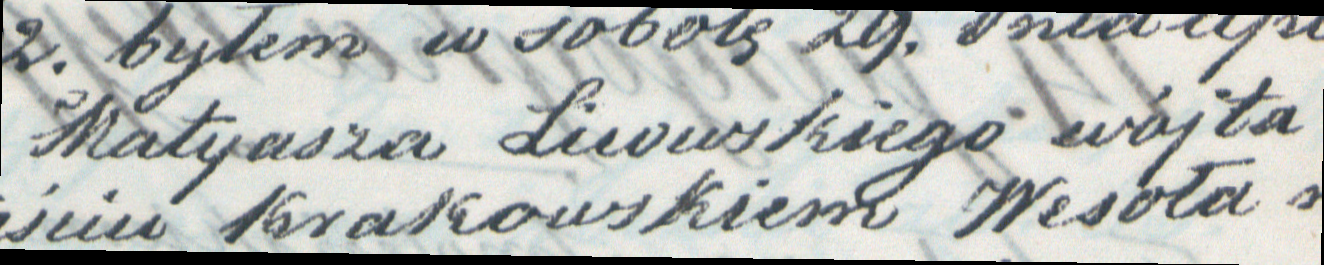 2. byłem w sobotę 29. dnia
Matyasza Lwowskiego wójta
Krakowskiem Wesoła